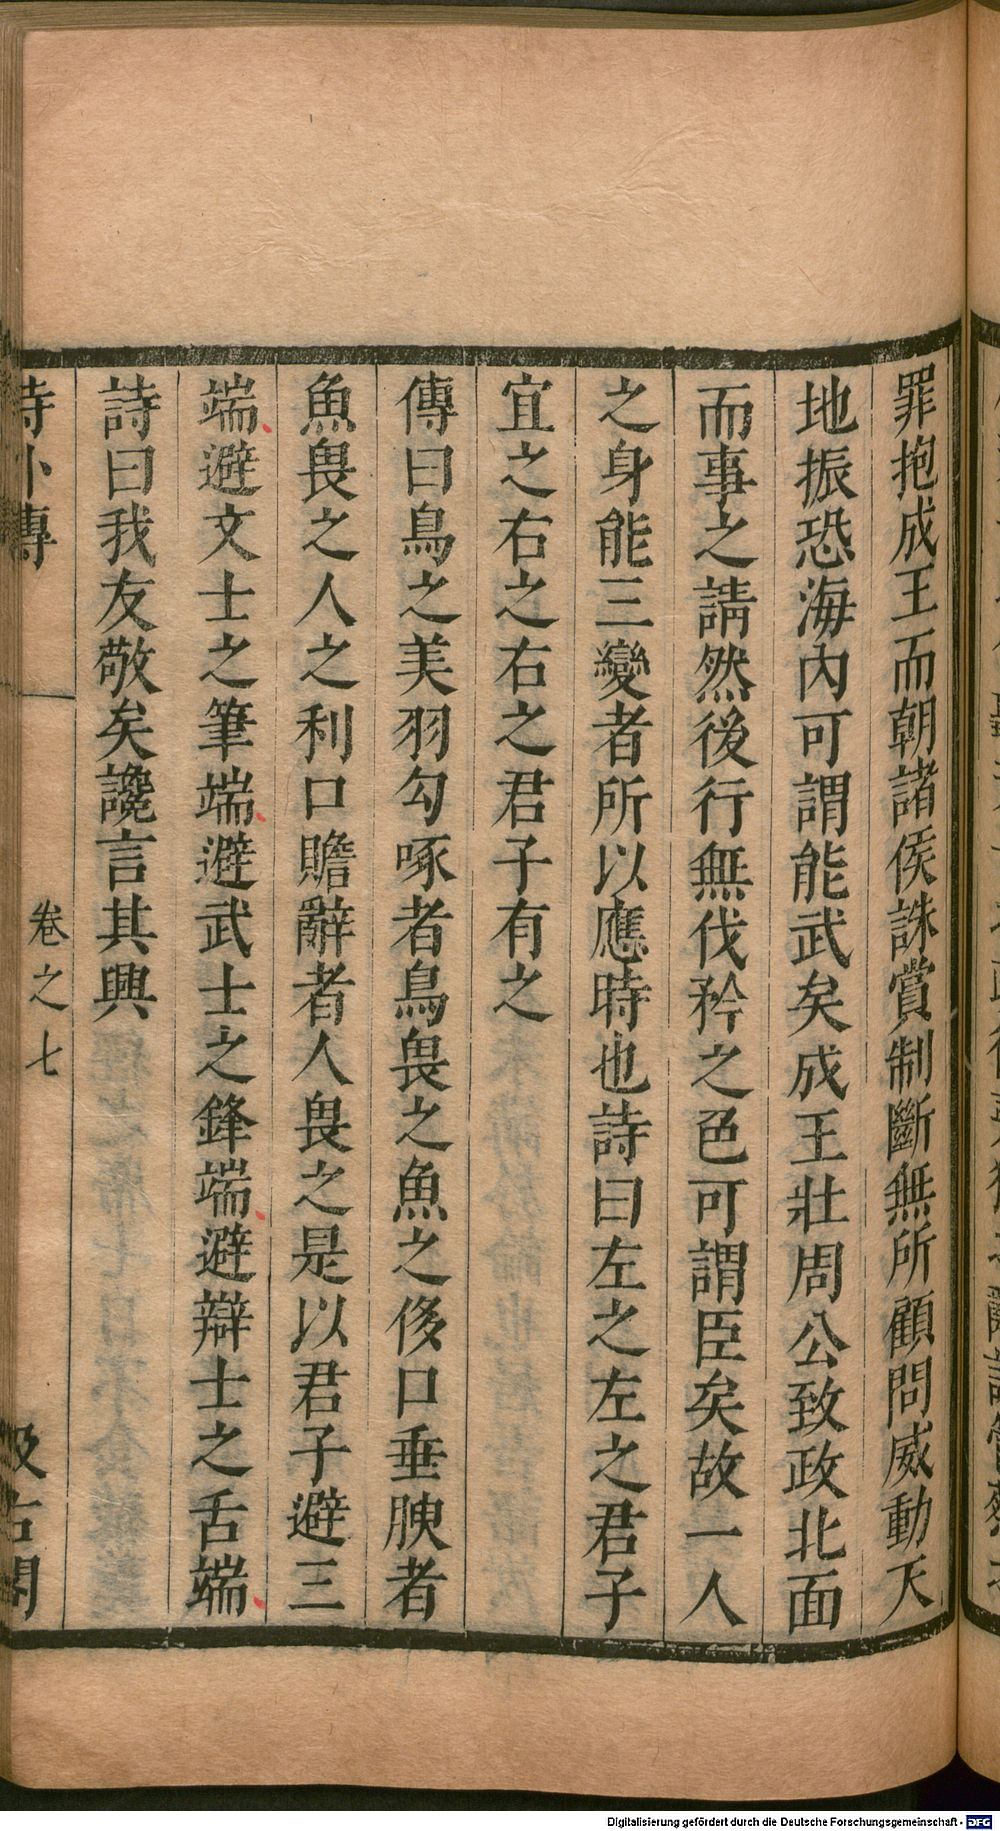 罪抱成王而朝諸侯誅賞制斷無所顧問威動天
地振恐海內可謂能武矣成王壯周公致政北面
而事之請然後行無伐矜之色可謂臣矣故一人
之身能三變者所以應時也詩曰左之左之君子
宜之右之右之君子有之
傳曰鳥之美羽勾啄者鳥畏之魚之侈口垂腴者
魚畏之人之利口贍辭者人畏之是以君子避三
端避文士之筆端避武士之鋒端避辯士之舌端
詩曰我友敬矣讒言其興
詩外傳
卷之七
汲古閣
Digitalisierung gefördert durch die Deutsche Forschungsgemeinschaft - DFG